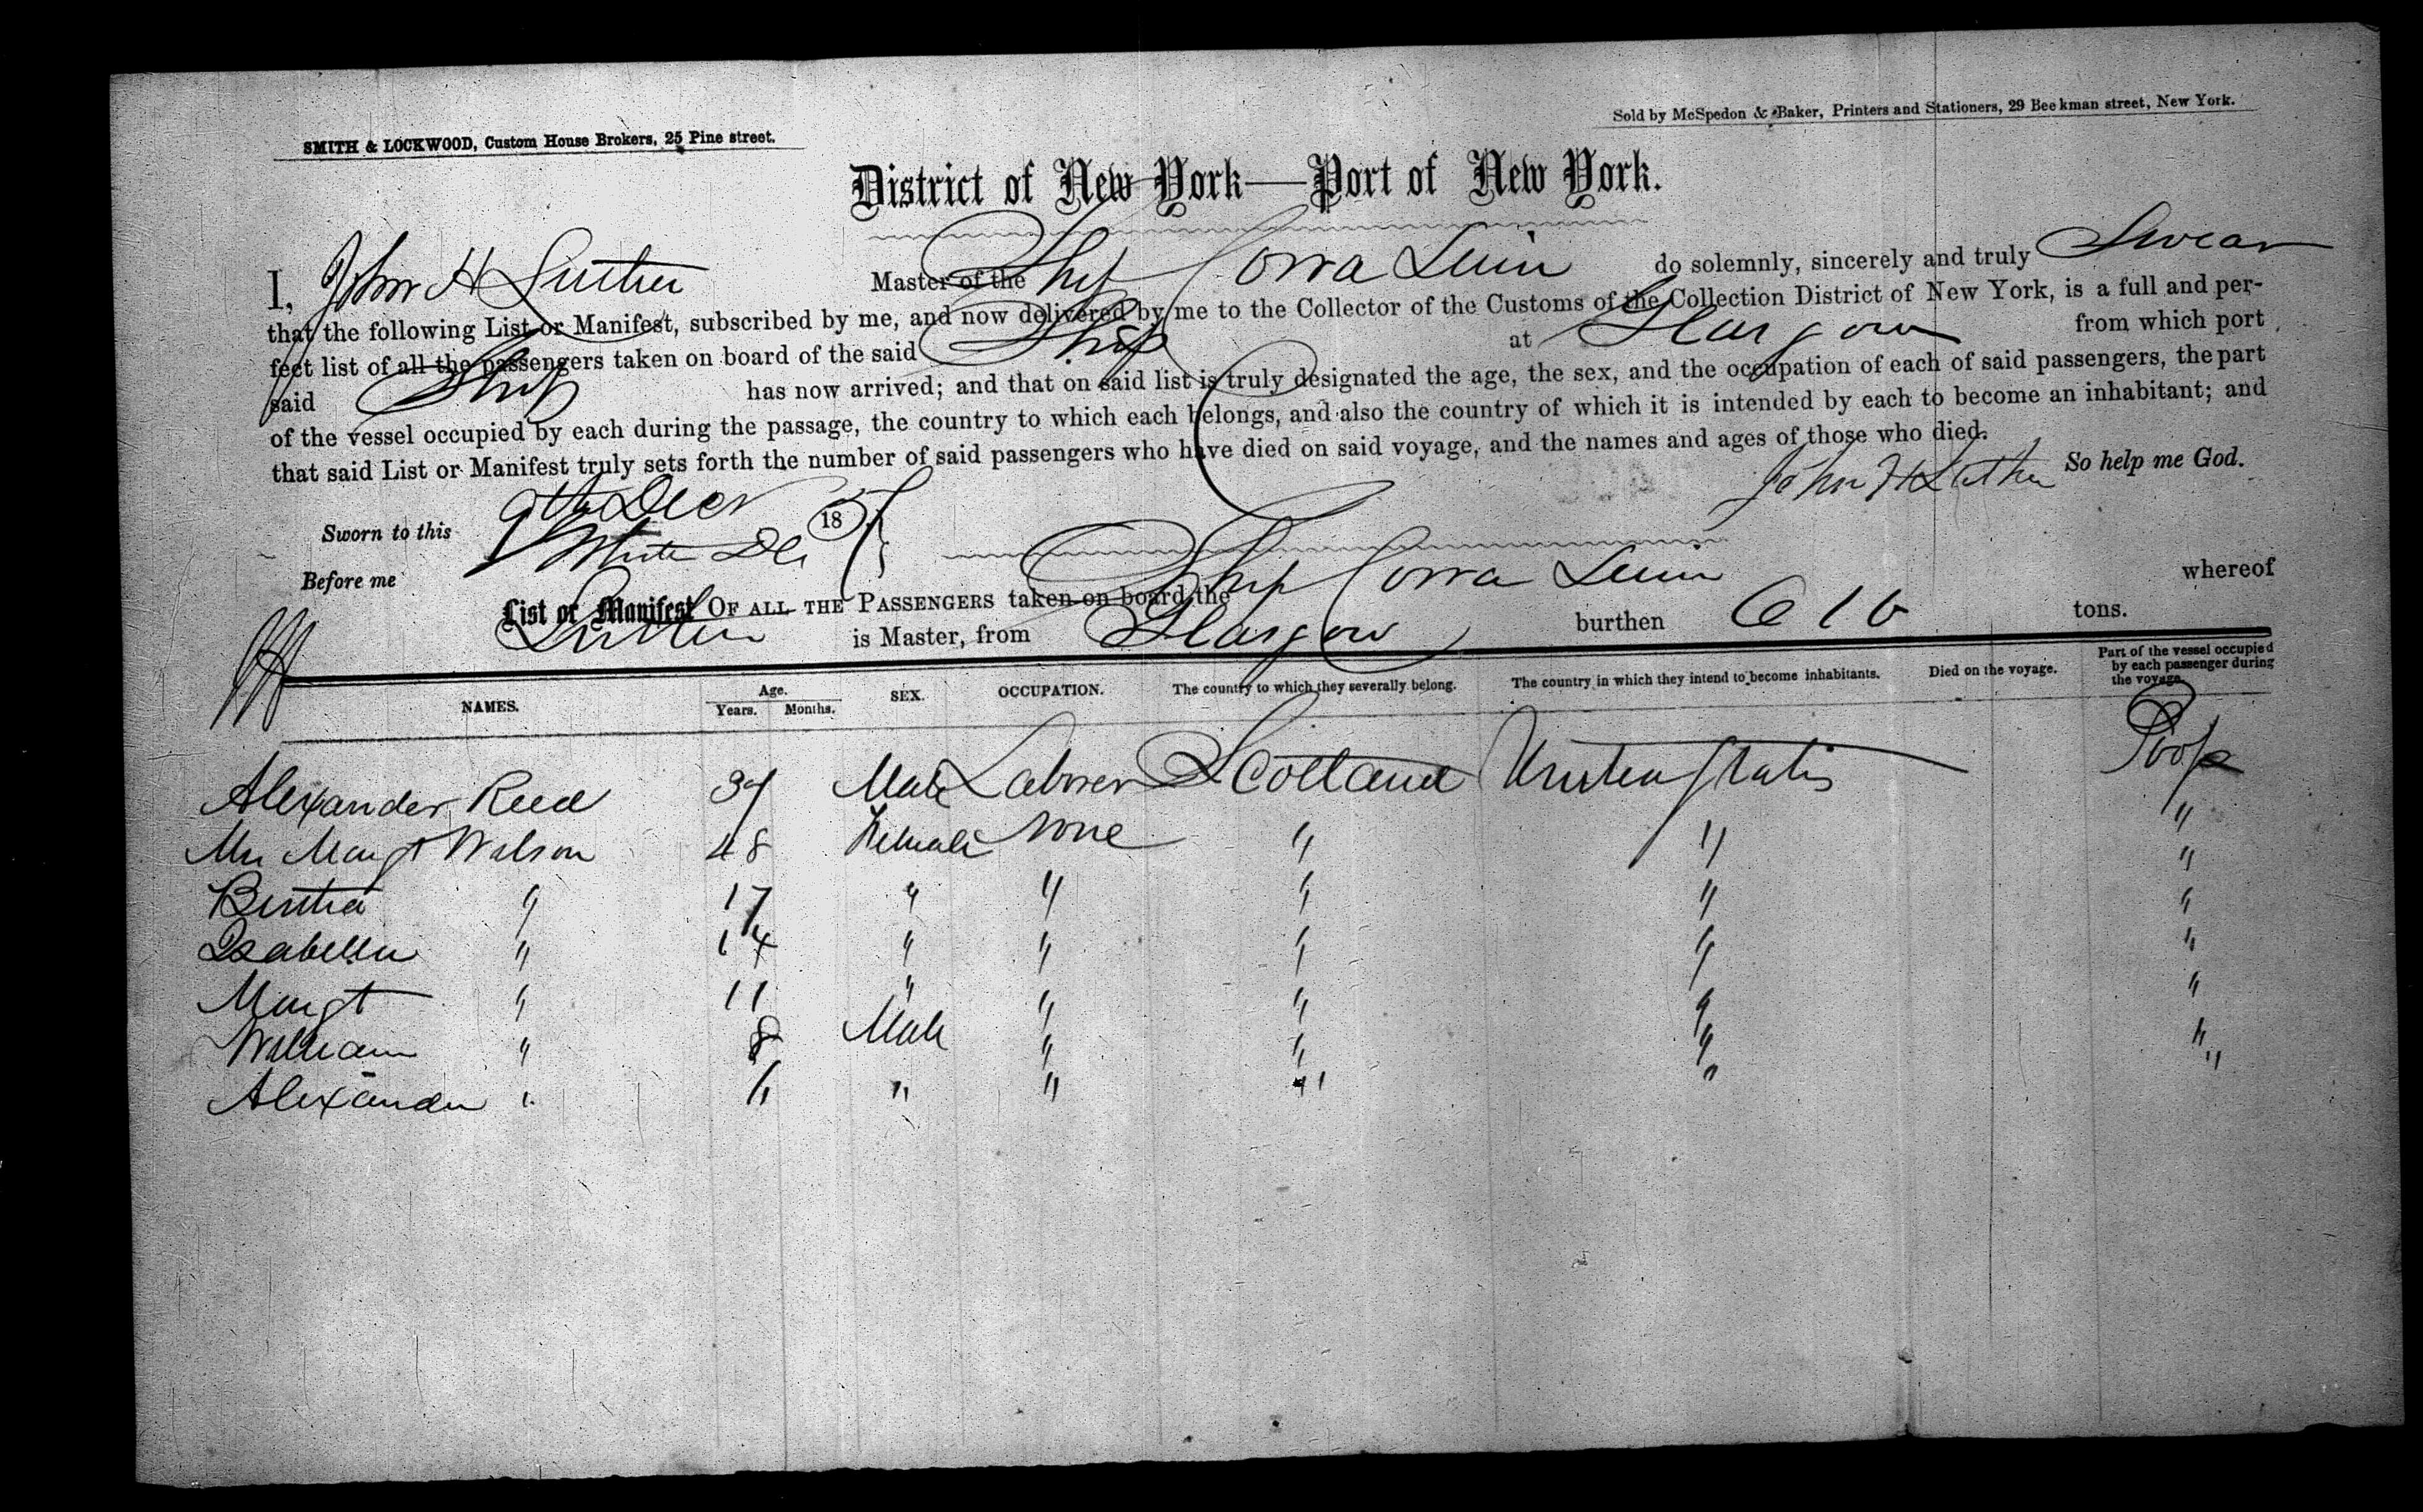 SMITH & LOCKWOOD, Custom House Brokers, 25 Pine street.
Sold by McSpedon & Baker, Printers and Stationers, 29 Beekman street, New York.
District of New York—Port of New York.
I, John H Luther Master of the Ship Corra Linn do solemnly, sincerely and truly Swear
that the following List or Manifest, subscribed by me, and now delivered by me to the Collector of the Customs of the Collection District of New York, is a full and per-
fect list of all the passengers taken on board of the said Ship at Glasgow from which port
said Ship has now arrived; and that on said list is truly designated the age, the sex, and the occupation of each of said passengers, the part
of the vessel occupied by each during the passage, the country to which each belongs, and also the country of which it is intended by each to become an inhabitant; and
that said List or Manifest truly sets forth the number of said passengers who have died on said voyage, and the names and ages of those who died.
So help me God.
John H Luther
Sworn to this 9th Decr 18
Before me
List or Manifest OF ALL THE PASSENGERS taken on board the Ship Corra Linn whereof
Luther is Master, from Glasgow burthen 616 tons.
NAMES. Age. Years. Months. SEX. OCCUPATION. The country to which they severally belong. The country in which they intend to become inhabitants. Died on the voyage. Part of the vessel occupied by each passenger during the voyage.
Alexander Reed Male Laborer Scotland United States Poop
Mrs Margt Watson 48 Female None " " "
" 17 " " " " "
Isabella " 14 " " " " "
Margt " 11 " " " " "
William " 8 Male " " " "
Alexander " " " " " "